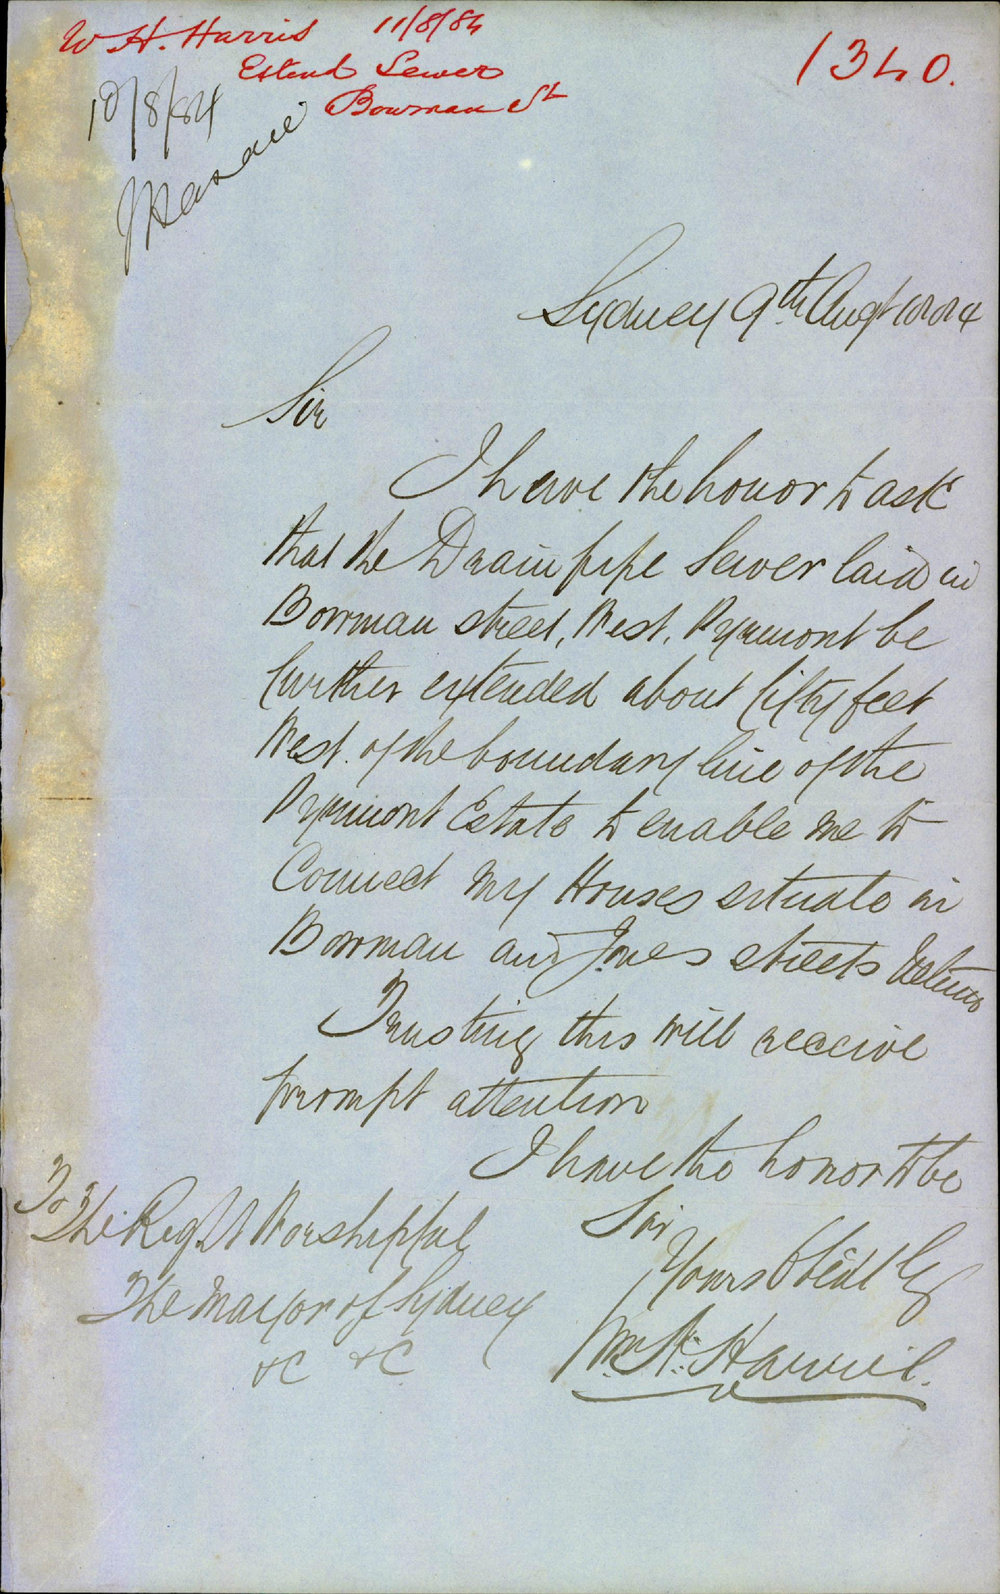 W H. Harris 11/8/84
Extend Sewer
Bowman St
1340.
10/8/84
Sydney 9th Augt 1884
Sir
I have the honor to ask
that the Drain pipe Sewer laid in
Bowman street, West, Pyrmont be
further extended about fifty feet
West of the boundary line of the
Pyrmont Estate to enable me to
Connect my Houses situate in
Bowman and Jones streets
Trusting this will receive
prompt attention
I have the honor to be
Sir
Yours Obedtly
Wm H. Harris.
To
The Right Worshipful
The Mayor of Sydney
&C &C